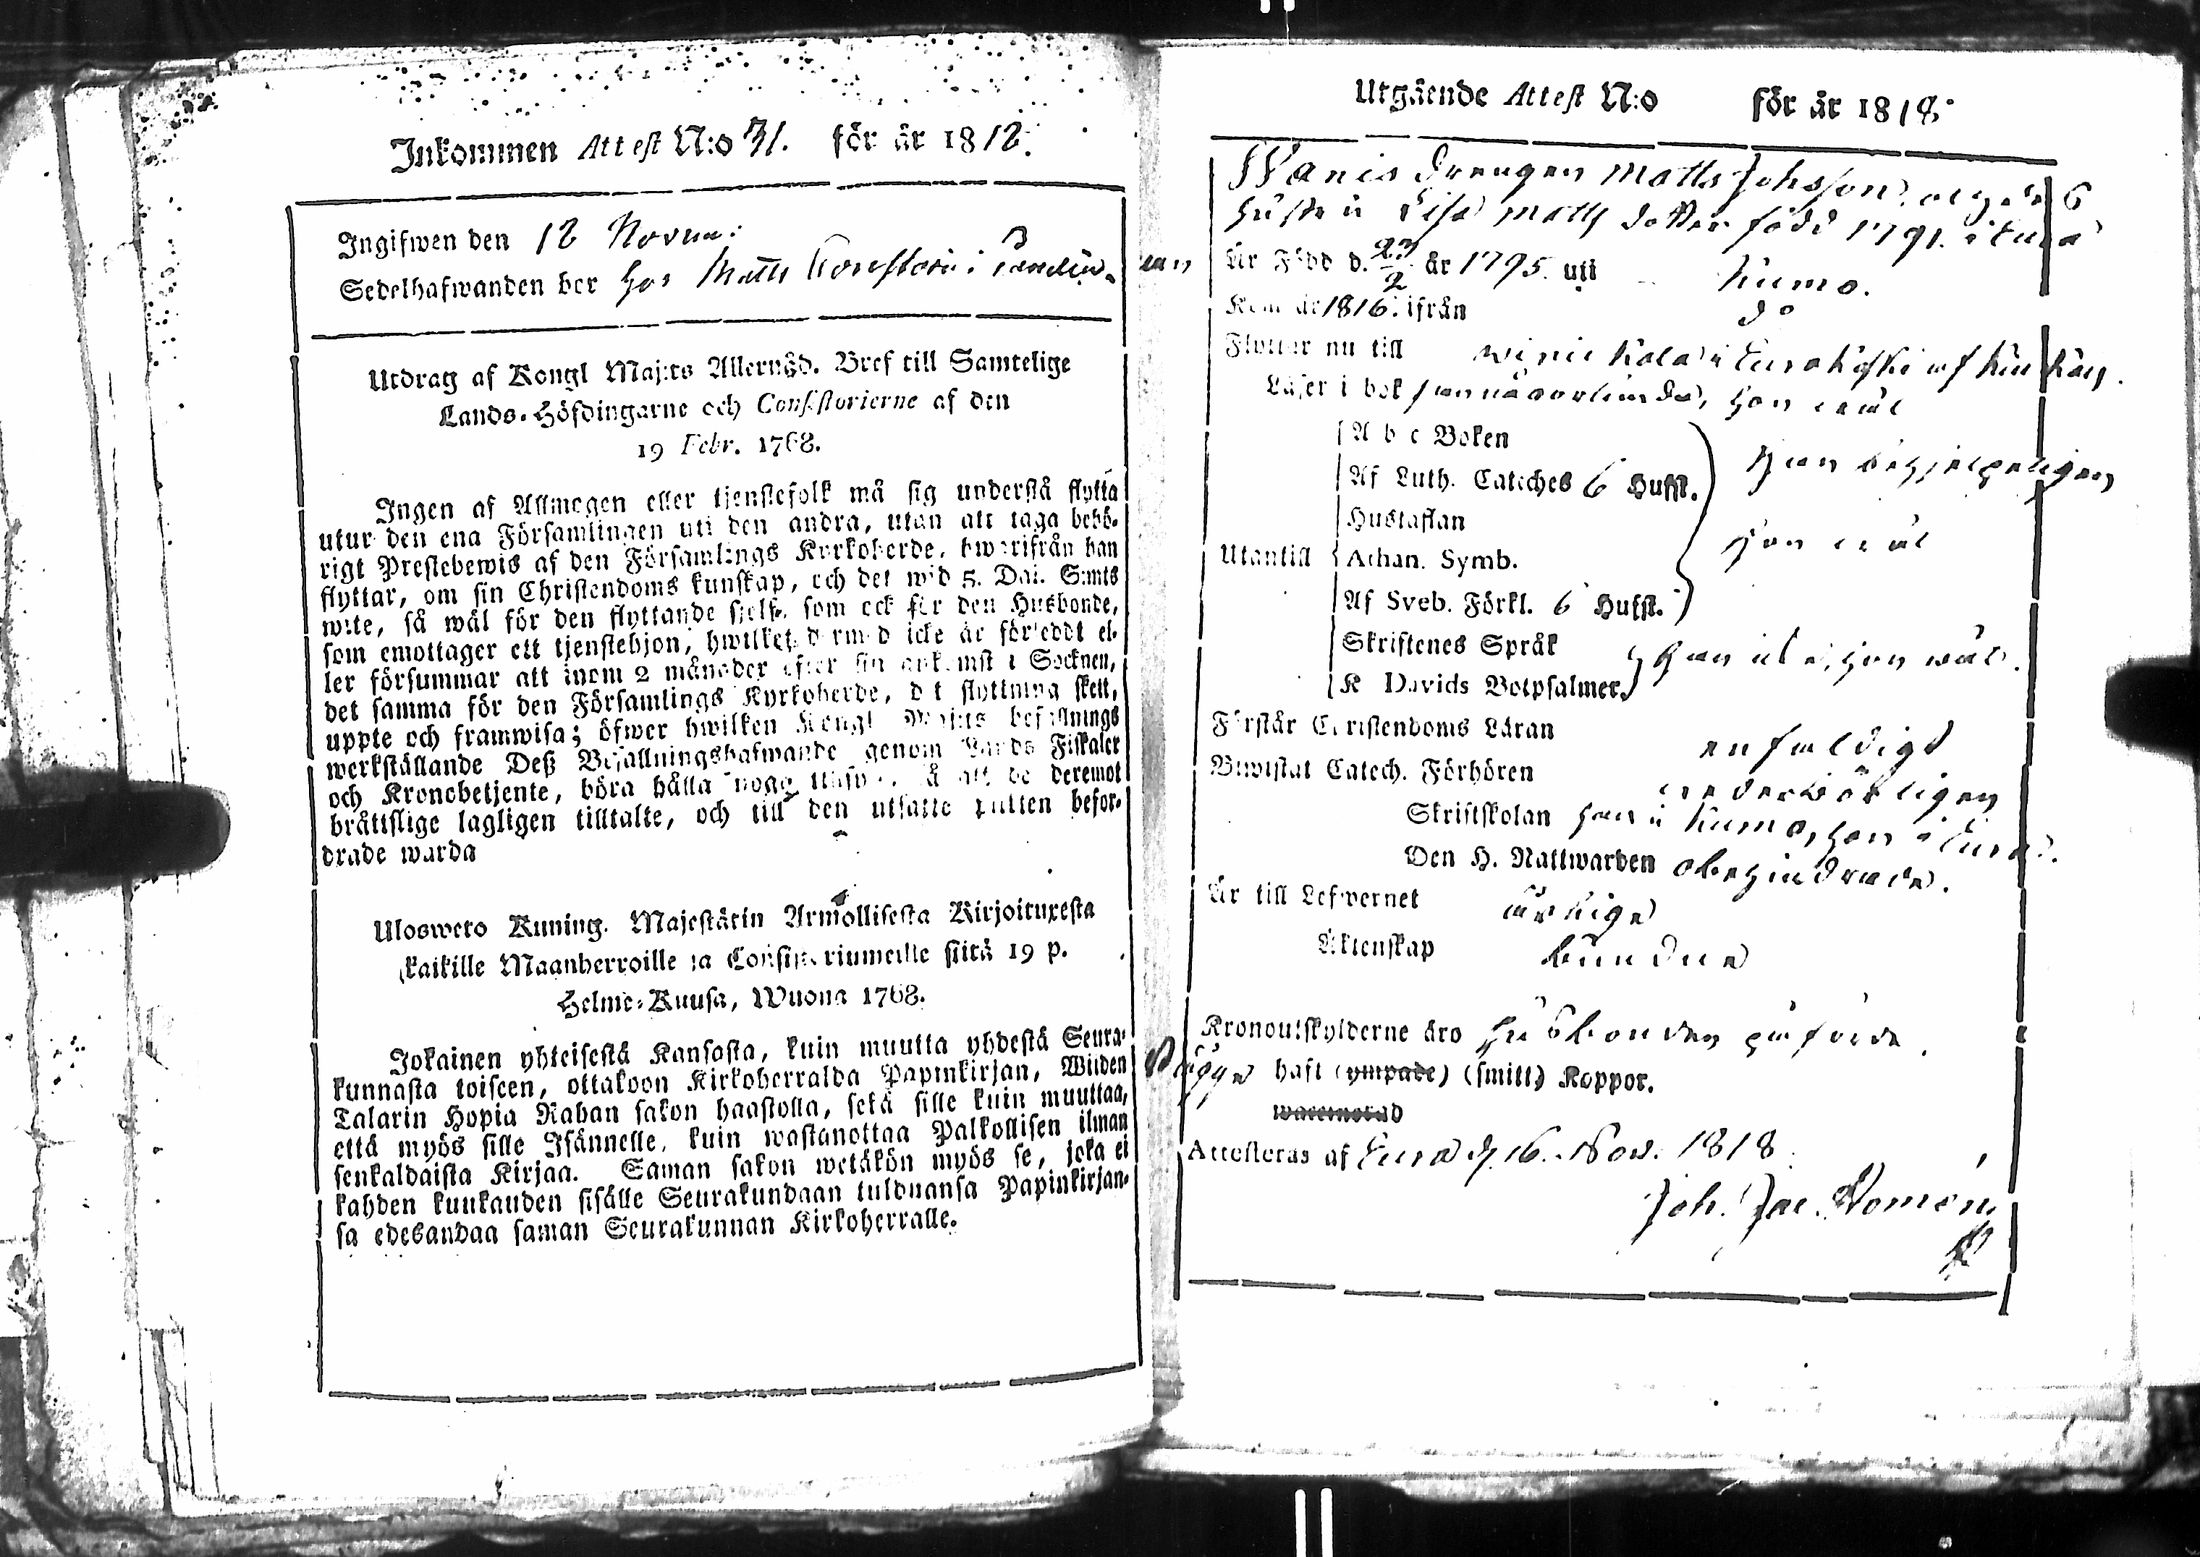 Inkommen Attest N:o 31. för år 1818.
Ingifwen den 18 Novem:
Sedelhafwanden bor hos Matts
Utdrag af Kongl Maj:ts Allernåd. Bref till Samtelige
Lands-Höfdingarne och Consistorierne af den
19 Febr. 1768.
Ingen af Allmogen eller tjenstefolk må sig understå flytta
utur den ena Församlingen uti den andra, utan att taga behö-
rigt Prestebewis af den Församlings Kyrkoherde, hwarifrån han
flyttar, om sin Christendoms kunskap, och det wid 5. Dal. S:mts
wite, så wäl för den flyttande sjelf, som ock för den Husbonde,
som emottager ett tjenstehjon, hwilket dermed icke är försedt el-
ler försummar att inom 2 månader efter sin ankomst i Socknen,
det samma för den Församlings Kyrkoherde, dit flyttning skett,
uppte och framwisa; öfwer hwilken Kongl Maj:ts befallnings
werkställande Deß Befallningshafwande genom Lands Fiskaler
och Kronobetjente, böra hålla noga så att de deremot
bråttslige lagligen tilltalte, och till den utsatte plikten befor-
drade warda
Ulosweto Kuning. Majestätin Armollisesta Kirjoituxesta
kaikille Maanherroille ja Consistoriumeille siitä 19 p.
Helme-Kuusa, Wuona 1768.
Jokainen yhteisestä Kansasta, kuin muutta yhdestä Seura-
kunnasta toiseen, ottakoon Kirkoherralda Papinkirjan, Wiiden
Talarin Hopia Rahan sakon haastolla, sekä sille kuin muuttaa,
että myös sille Isännelle, kuin wastanottaa Palkollisen ilman
senkaldaista Kirjaa. Saman sakon wetäkön myös se, joka ei
kahden kuukauden sisälle Seurakundaan tulduansa Papinkirjan-
sa edesandaa saman Seurakunnan Kirkoherralle.
Utgående Attest N:o för år 1818.
Drengen Matts Johsson
hustru Lisa Matts dotter född 1791. i Eura
Är Född d. 23/2 år 1795. uti Kumo.
Kom år 1816. ifrån do
Flyttar nu till
Läser i bok
A b c Boken
Af Luth. Cateches 6 Hufst. Han behjelpeligen
Hustaflan
Utantill Athan. Symb. Hon wäl
Af Sveb. Förkl. 6 Hufst.
Skriftenes Språk
K Davids Botpsalmer
Förstår Christendoms Läran enfaldigt
Biwistat Catech. Förhören
Skriftskolan han i Kumo, hon i Eura.
Den H. Nattwarden obehindrade.
Är till Lefwernet ärlige
Äktenskap bundne
Kronoutskylderne äro Husbonden påförde.
Bägge haft (ympade) (smitt) Koppor.
Attesteras af Eura d. 16. Nov. 1818
Joh. Jac. Nomén.